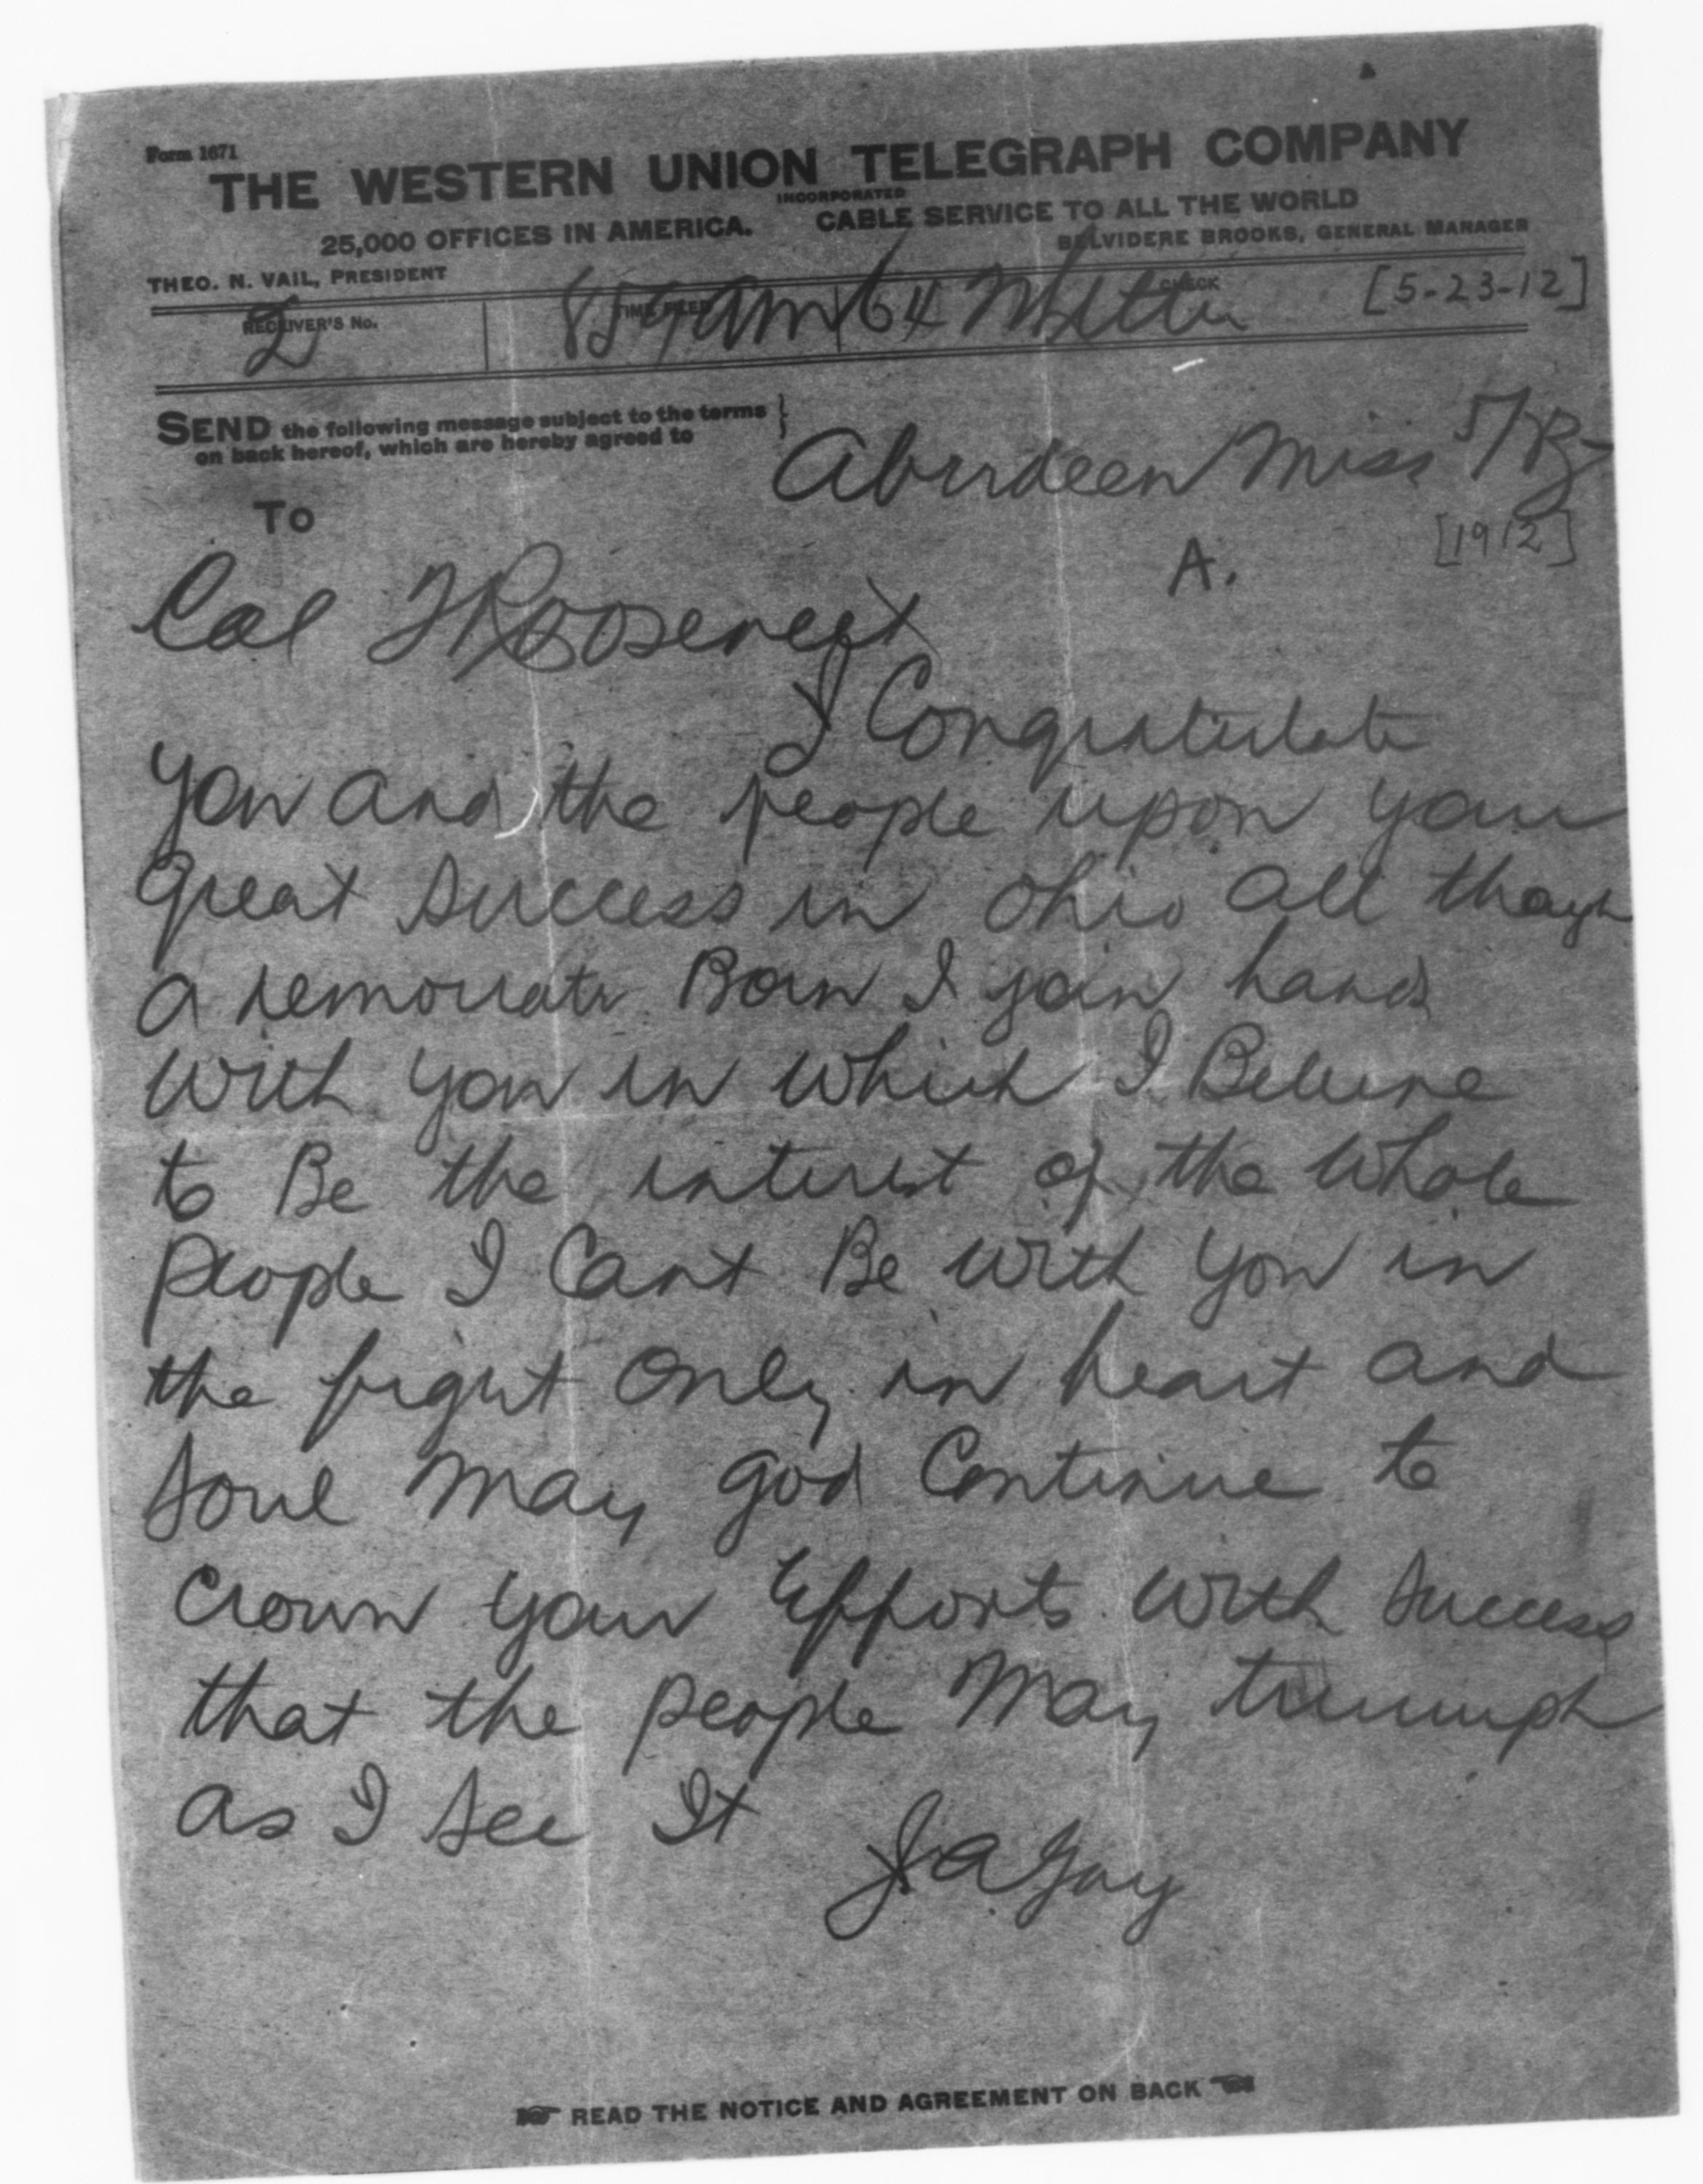 Form 1671
THE WESTERN UNION TELEGRAPH COMPANY
INCORPORATED
25,000 OFFICES IN AMERICA. CABLE SERVICE TO ALL THE WORLD
THEO. N. VAIL, PRESIDENT BELVIDERE BROOKS, GENERAL MANAGER
RECEIVER'S No. TIME FILED CHECK
2 859am 64 [5-23-12]
SEND the following message subject to the terms
on back hereof, which are hereby agreed to
Aberdeen Miss
To
[1912]
A.
Col T Roosevelt
I Congratulate
you and the people upon your
great success in ohio all though
a democrate Born I join hands
with you in which I Believe
to Be the interest of the whole
people I Cant Be with you in
the fight only in heart and
soul may god Continue to
crown your Efforts with success
that the people may triumph
as I see It
J a Gay
READ THE NOTICE AND AGREEMENT ON BACK